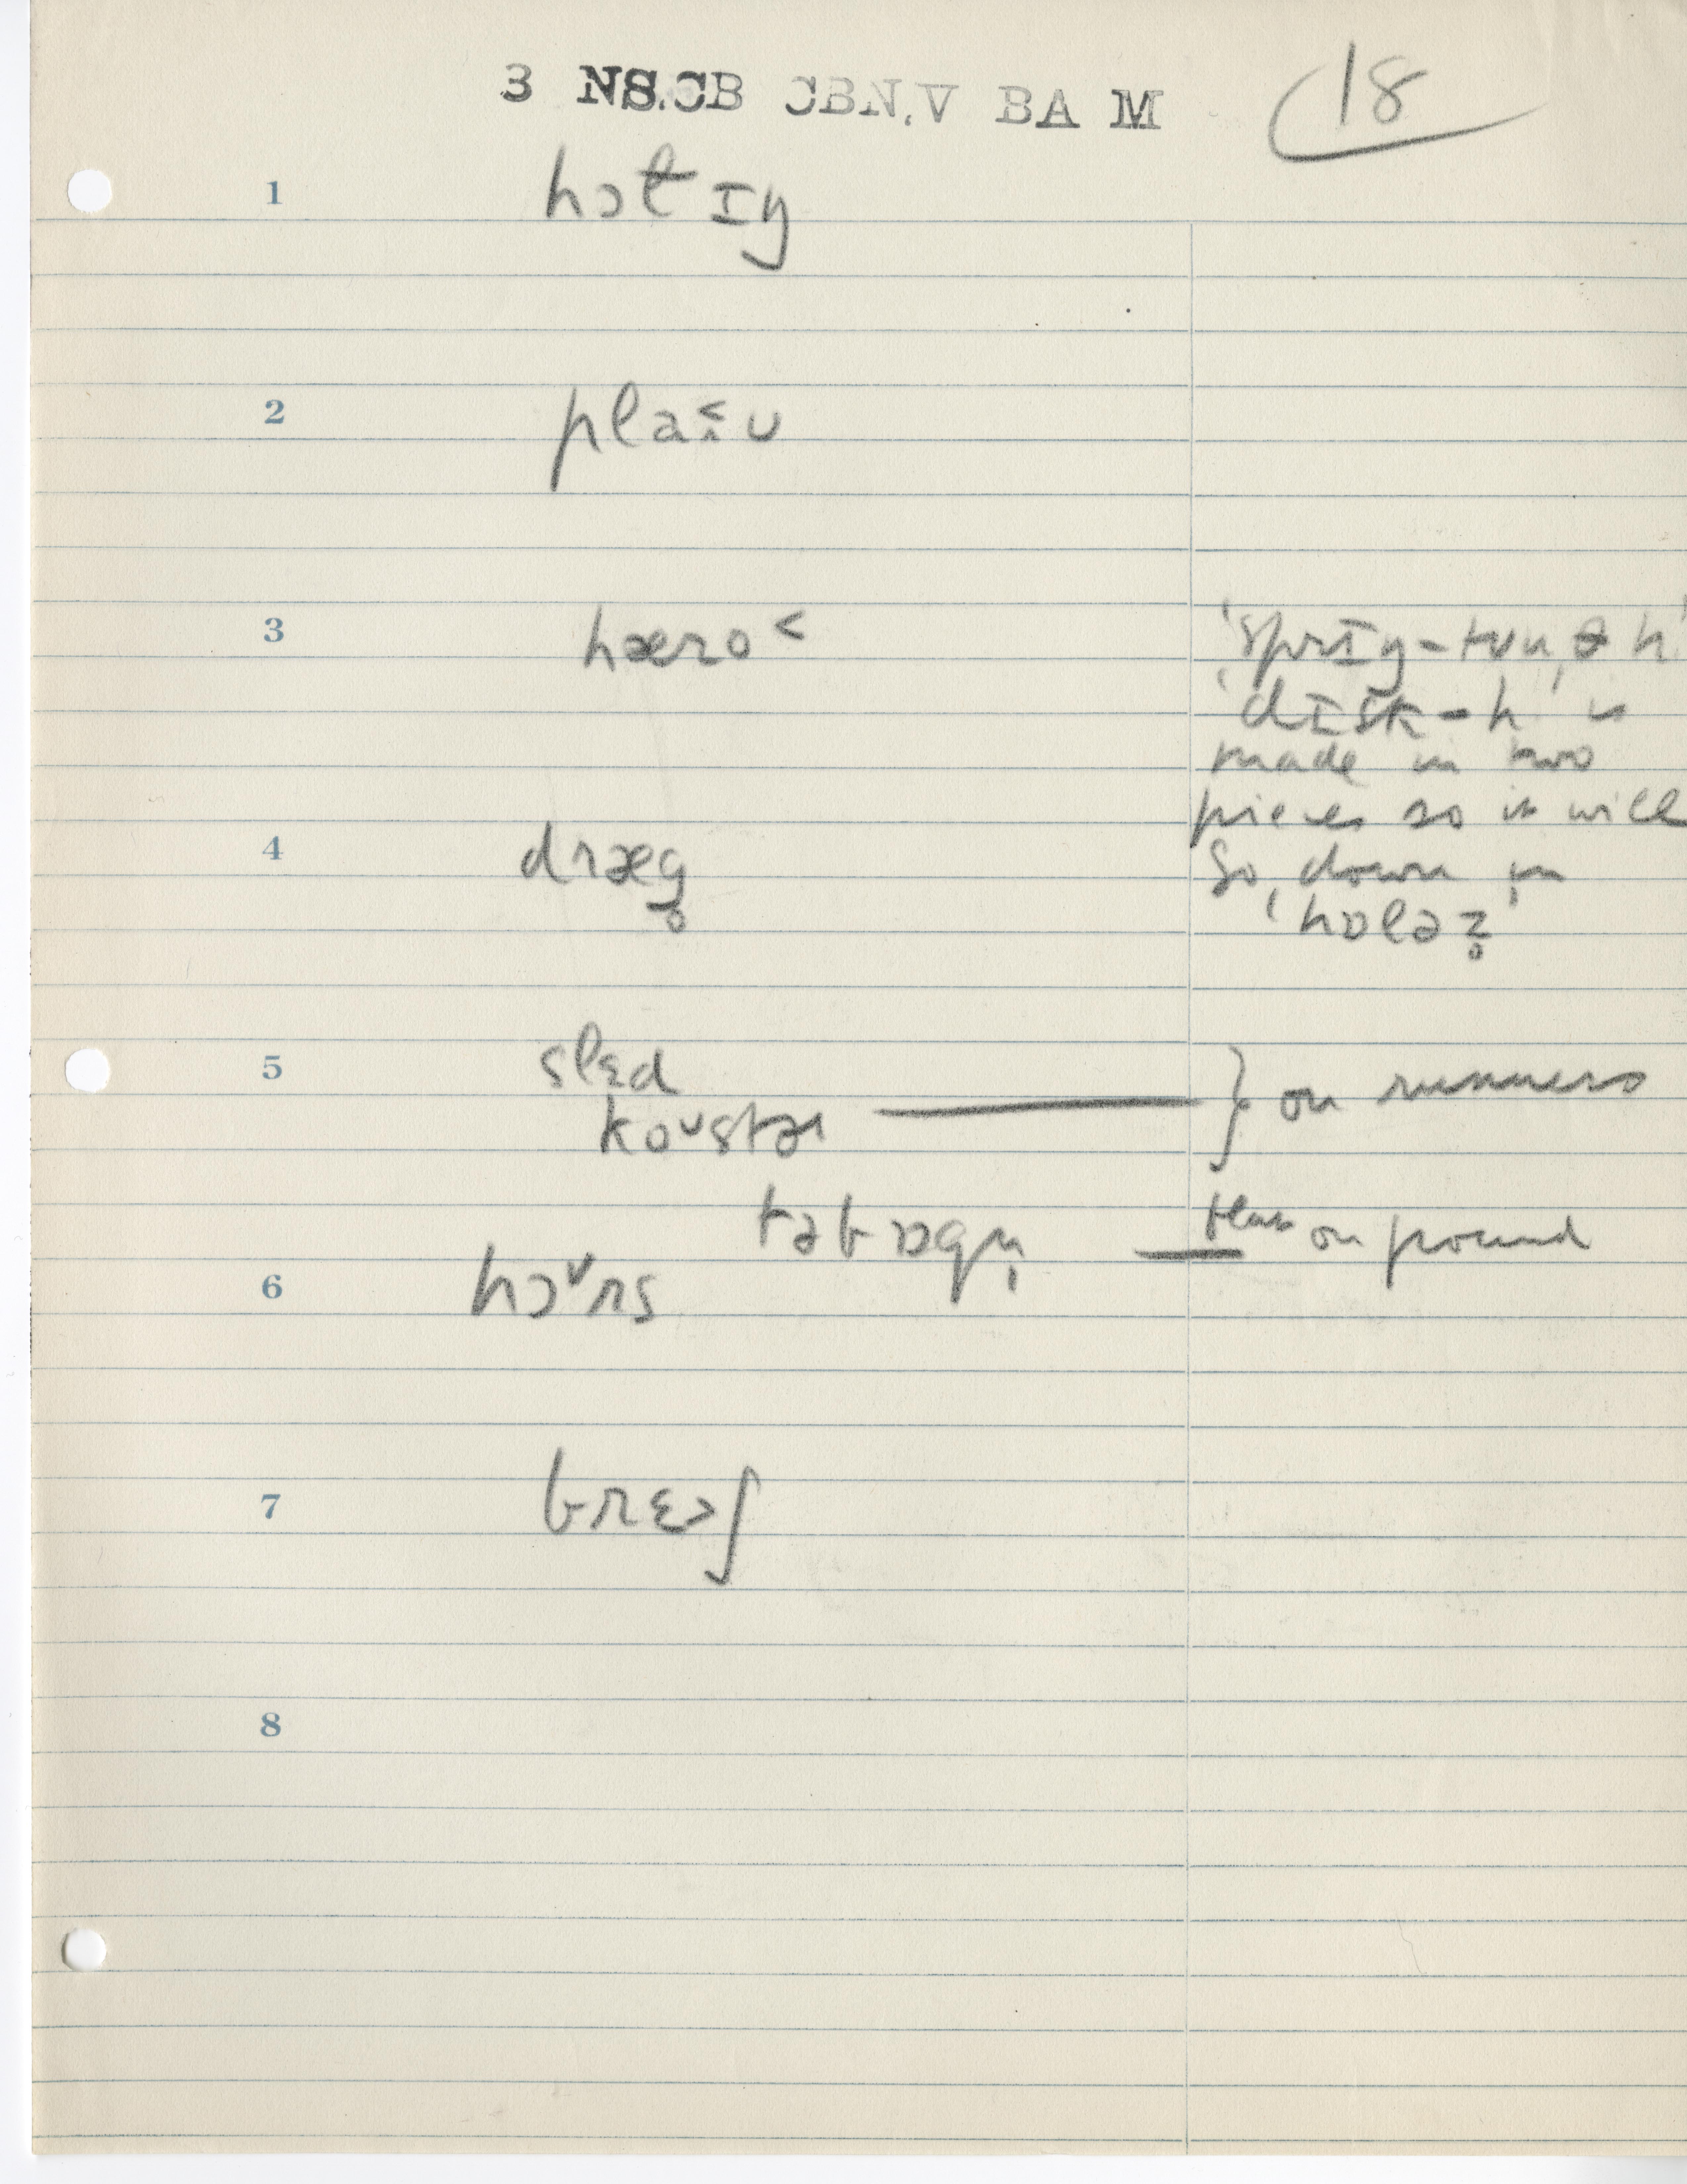 3 NS.CB CBN.V BA M
18
1 hɔt ɪŋ
2 plaʊ
3 hæro˂
'sprɪŋ-tuθ h'
'dɪsk-h' is
made in two
pieces so it will
go down in
'hɒləz̥'
4 dræg̥
5 slɛd
koᵛstə
} on runners
təbɒgn̩ — on ground
6 hɔᵛrs
7 brɛ˃ʃ
8